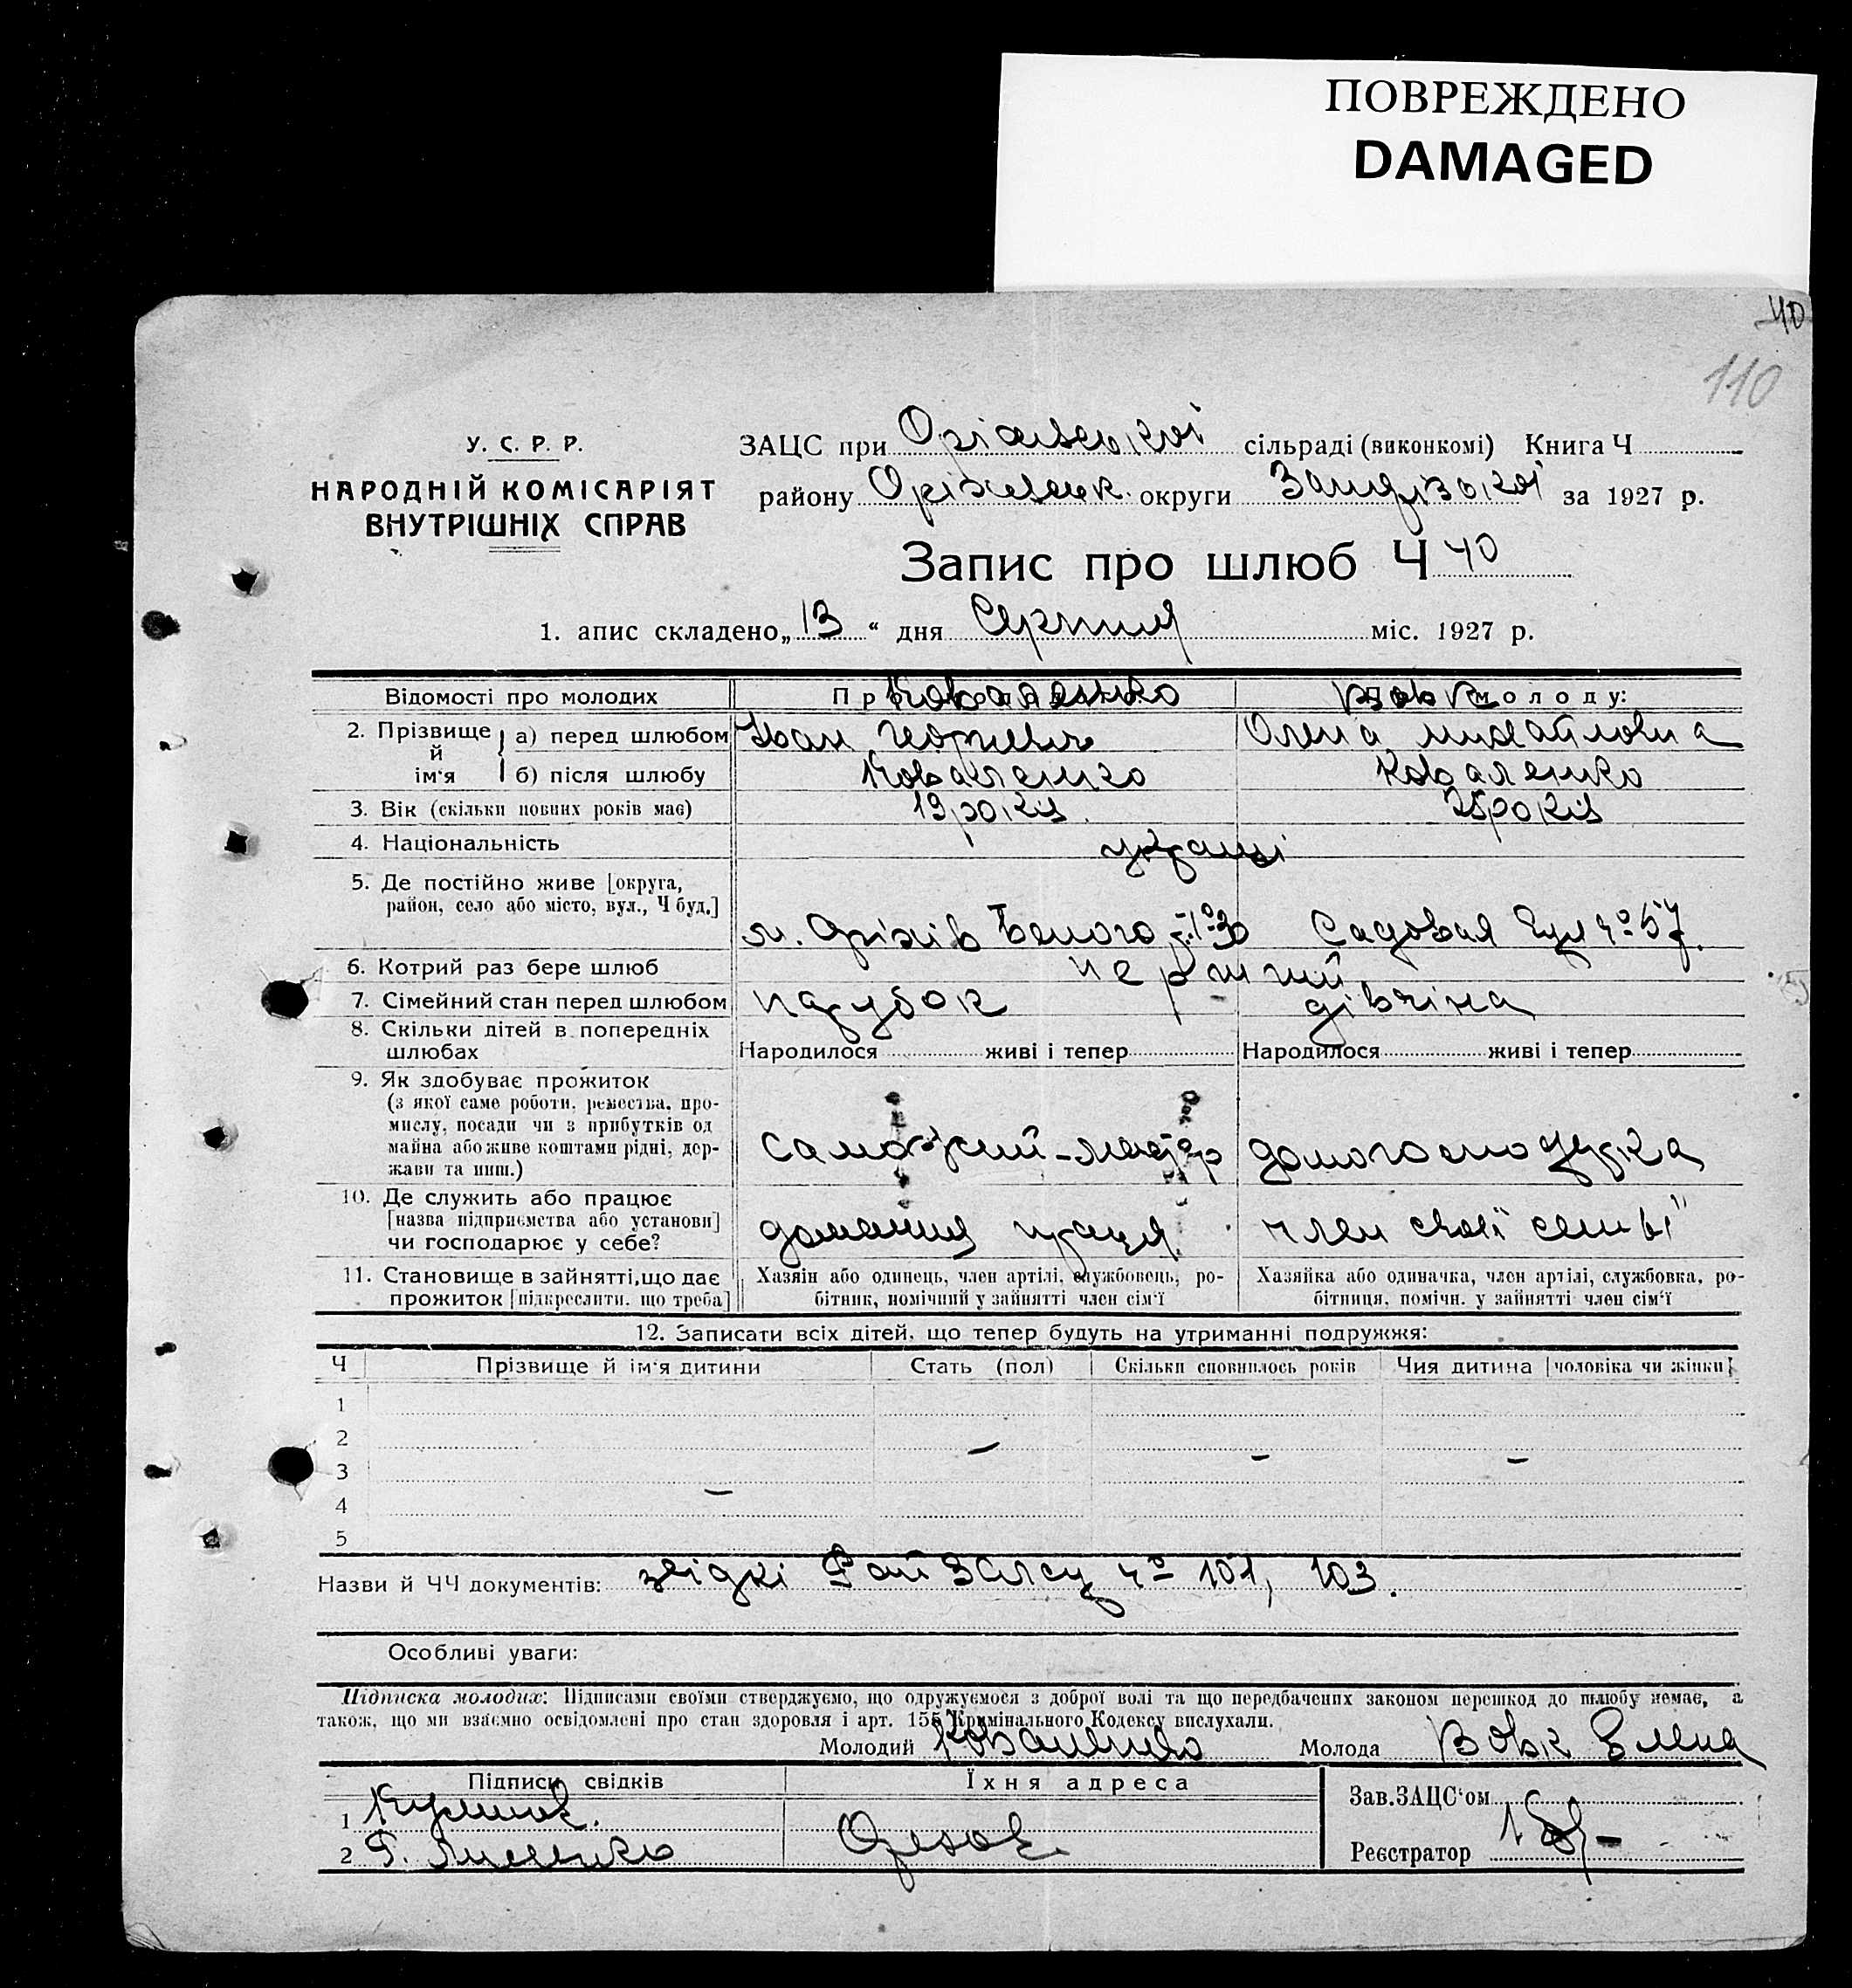 ПОВРЕЖДЕНО
DAMAGED
40
110
У. С. Р. Р.
НАРОДНІЙ КОМІСАРІЯТ
ВНУТРІШНІХ СПРАВ
ЗАЦС при Оріхівській сільраді (виконкомі) Книга Ч
району Оріхівськ. округи Запорізької за 1927 р.
Запис про шлюб Ч 40
1. апис складено „13“ дня Серпня міс. 1927 р.
Відомості про молодих
Коваленко
Вовк молоду:
2. Прізвище й ім‘я
а) перед шлюбом Іван Георгієвіч Олена Михайловна
б) після шлюбу Коваленко Коваленко
3. Вік (скільки повних років має) 19 років 25 років
4. Національність українці
5. Де постійно живе [округа,
район, село або місто, вул., Ч буд.]
м. Оріхів Садовая вул ч° 57.
6. Котрий раз бере шлюб перший
7. Сімейний стан перед шлюбом парубок дівчіна
8. Скільки дітей в попередніх
шлюбах
Народилося живі і тепер Народилося живі і тепер
9. Як здобуває прожиток
(з якої саме роботи, ремества, про-
мислу, посади чи з прибутків од
майна або живе коштами рідні, дер-
жави та инш.)
домогосподарка
10. Де служить або працює
[назва підприємства або установи]
чи господарює у себе?
домашня праця. член своєї семьї
11. Становище в зайнятті, що дає
прожиток [підкреслити, що треба]
Хазяїн або одинець, член артілі, службовець, ро-
бітник, помічний у зайнятті член сім‘ї
Хазяйка або одиначка, член артілі, службовка, ро-
бітниця, помічн. у зайнятті член сім‘ї
12. Записати всіх дітей, що тепер будуть на утриманні подружжя:
Ч Прізвище й ім‘я дитини Стать (пол) Скільки сповнилось років Чия дитина [чоловіка чи жінки]
1
2
3
4
5
Назви й ЧЧ документів: звідкі Рай ЗАГСу ч° 101, 103.
Особливі уваги:
Підписка молодих: Підписами своїми стверджуємо, що одружуємося з доброї волі та що передбачених законом перешкод до шлюбу немає, а
також, що ми взаємно освідомлені про стан здоровля і арт. 155 Кримінального Кодексу вислухали.
Молодий Коваленко Молода Вовк Елена
Підписи свідків Їхня адреса
1
2 Г. Лисенко
Орехов
Зав. ЗАЦС‘ом
Реєстратор